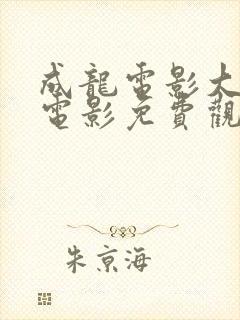 成龍電影大
電影免費觀
朱京海